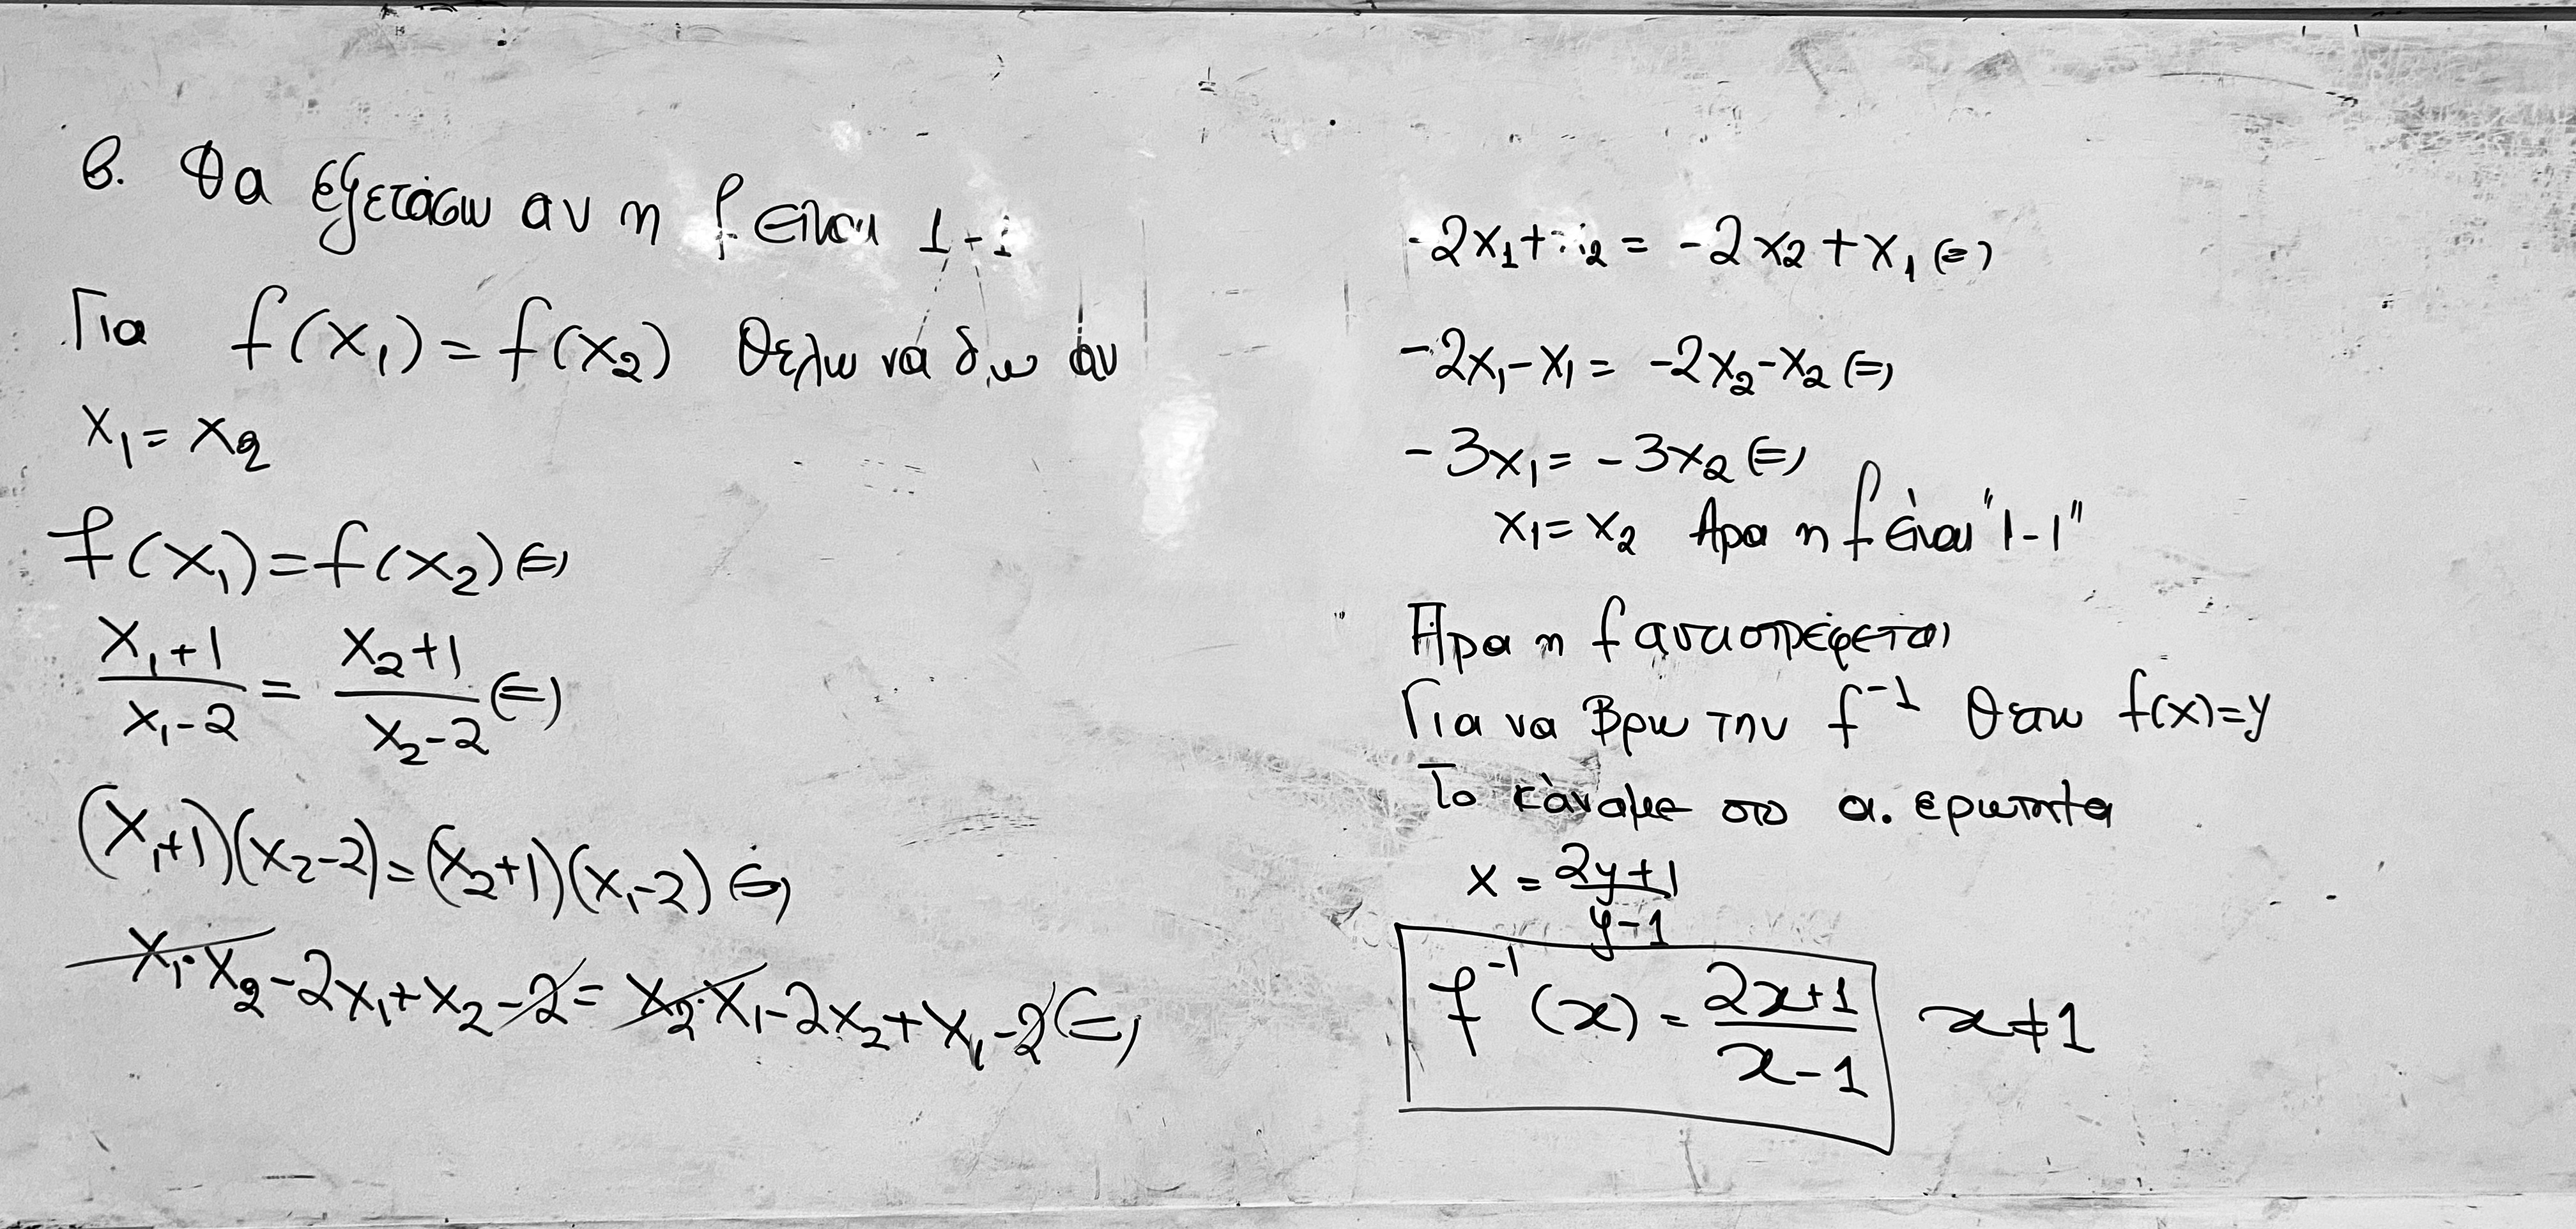 β. Θα εξετάσω αν η f είναι 1-1
Για f(x₁) = f(x₂) θέλω να δω αν
x₁ = x₂
f(x₁) = f(x₂) (=)
(x₁+1)/(x₁-2) = (x₂+1)/(x₂-2) (=)
(x₁+1)(x₂-2) = (x₂+1)(x₁-2) (=)
x₁·x₂ - 2x₁ + x₂ - 2 = x₂·x₁ - 2x₂ + x₁ - 2 (=)
-2x₁ + x₂ = -2x₂ + x₁ (=)
-2x₁ - x₁ = -2x₂ - x₂ (=)
-3x₁ = -3x₂ (=)
x₁ = x₂ Άρα η f είναι "1-1"
Άρα η f αναστρέφεται
Για να βρω την f⁻¹ θέτω f(x)=y
Το κάναμε στο α. ερώτημα
x = (2y+1)/(y-1)
f⁻¹(x) = (2x+1)/(x-1) x≠1